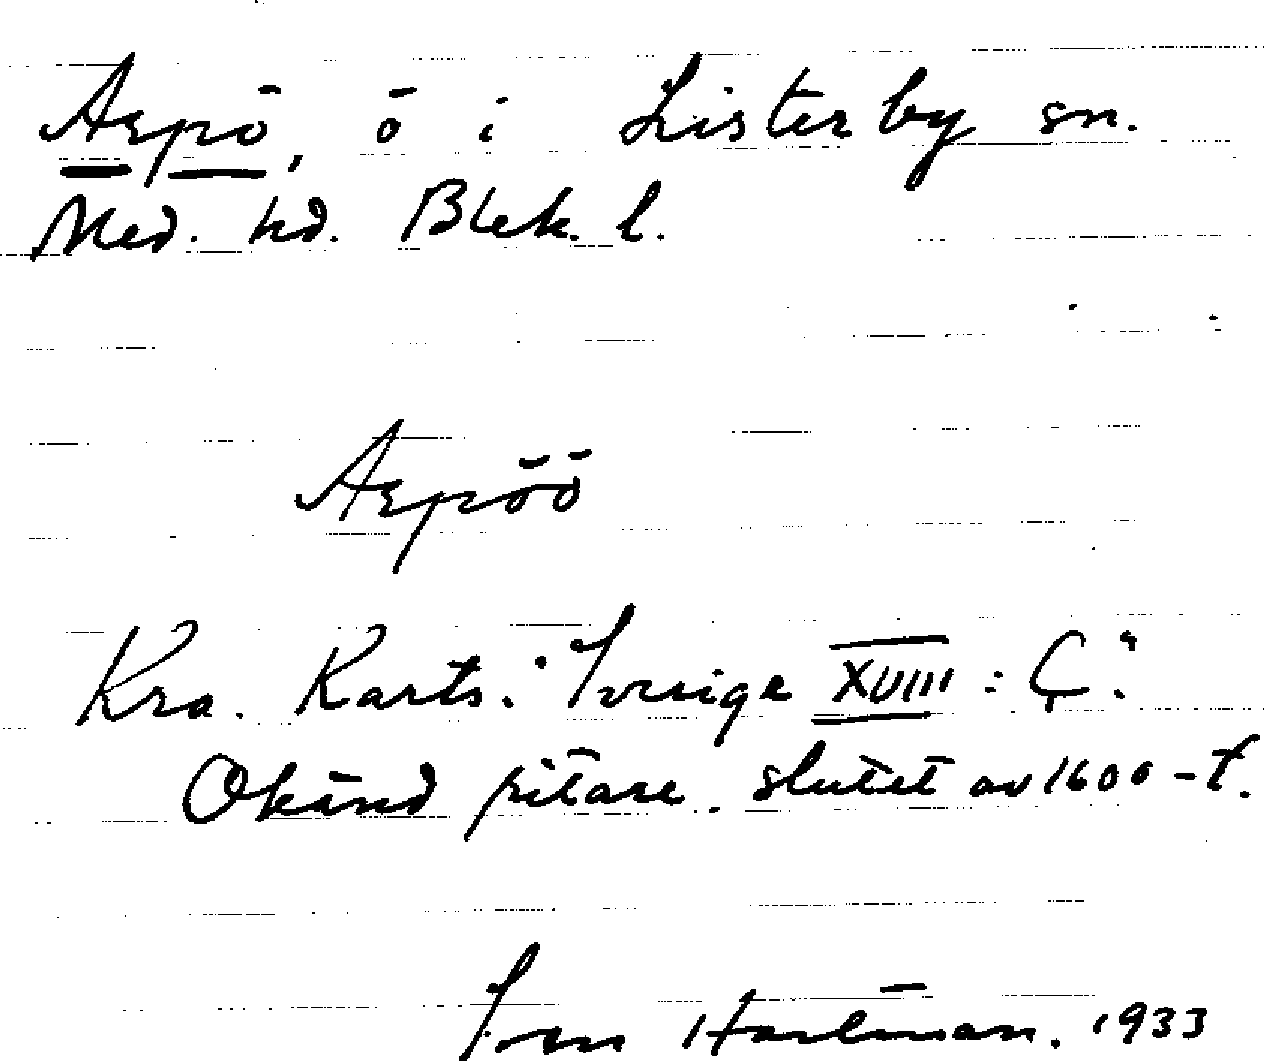 Arpö, ö i Listerby sn.
Med. hd. Blek. l.
Arpöö
Kra. Karts. Sverige XVIII : C:
Okänd ritare. slutet av 1600-t.
Hartman. 1933